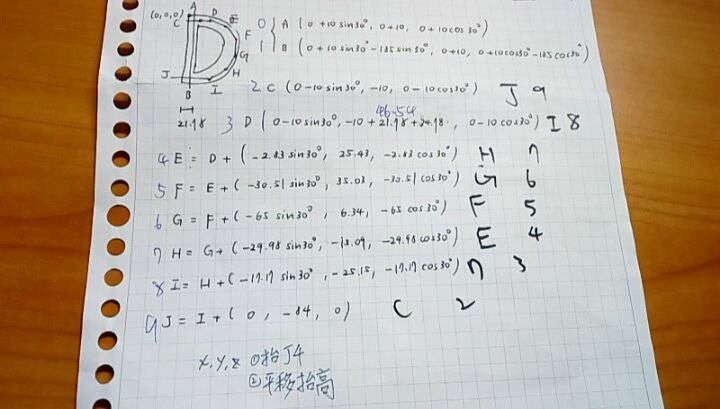 (0,0,0) A
C D E
F
G
H
J I
B
21.98
0 A ( 0+10 sin30°, 0+10, 0+10cos30° )
1 B ( 0+10 sin30°-185 sin30°, 0+10, 0+10cos30°-185cos30° )
2 C ( 0-10 sin30°, -10, 0-10cos30° ) J 9
46.54
3 D ( 0-10 sin30°, -10 + 21.98 + , 0-10cos30° ) I 8
4 E = D + ( -2.83 sin30°, 25.43, -2.83 cos30° ) H 7
5 F = E + ( -30.51 sin30°, 35.03, -30.51 cos30° ) G 6
6 G = F + ( -65 sin30°, 6.34, -65 cos30° ) F 5
7 H = G + ( -29.98 sin30°, -13.09, -29.98 cos30° ) E 4
8 I = H + ( -17.17 sin30°, -25.15, -17.17 cos30° ) 3
9 J = I + ( 0, -84, 0 ) C 2
x, y, z ①抬J4
②平移抬高